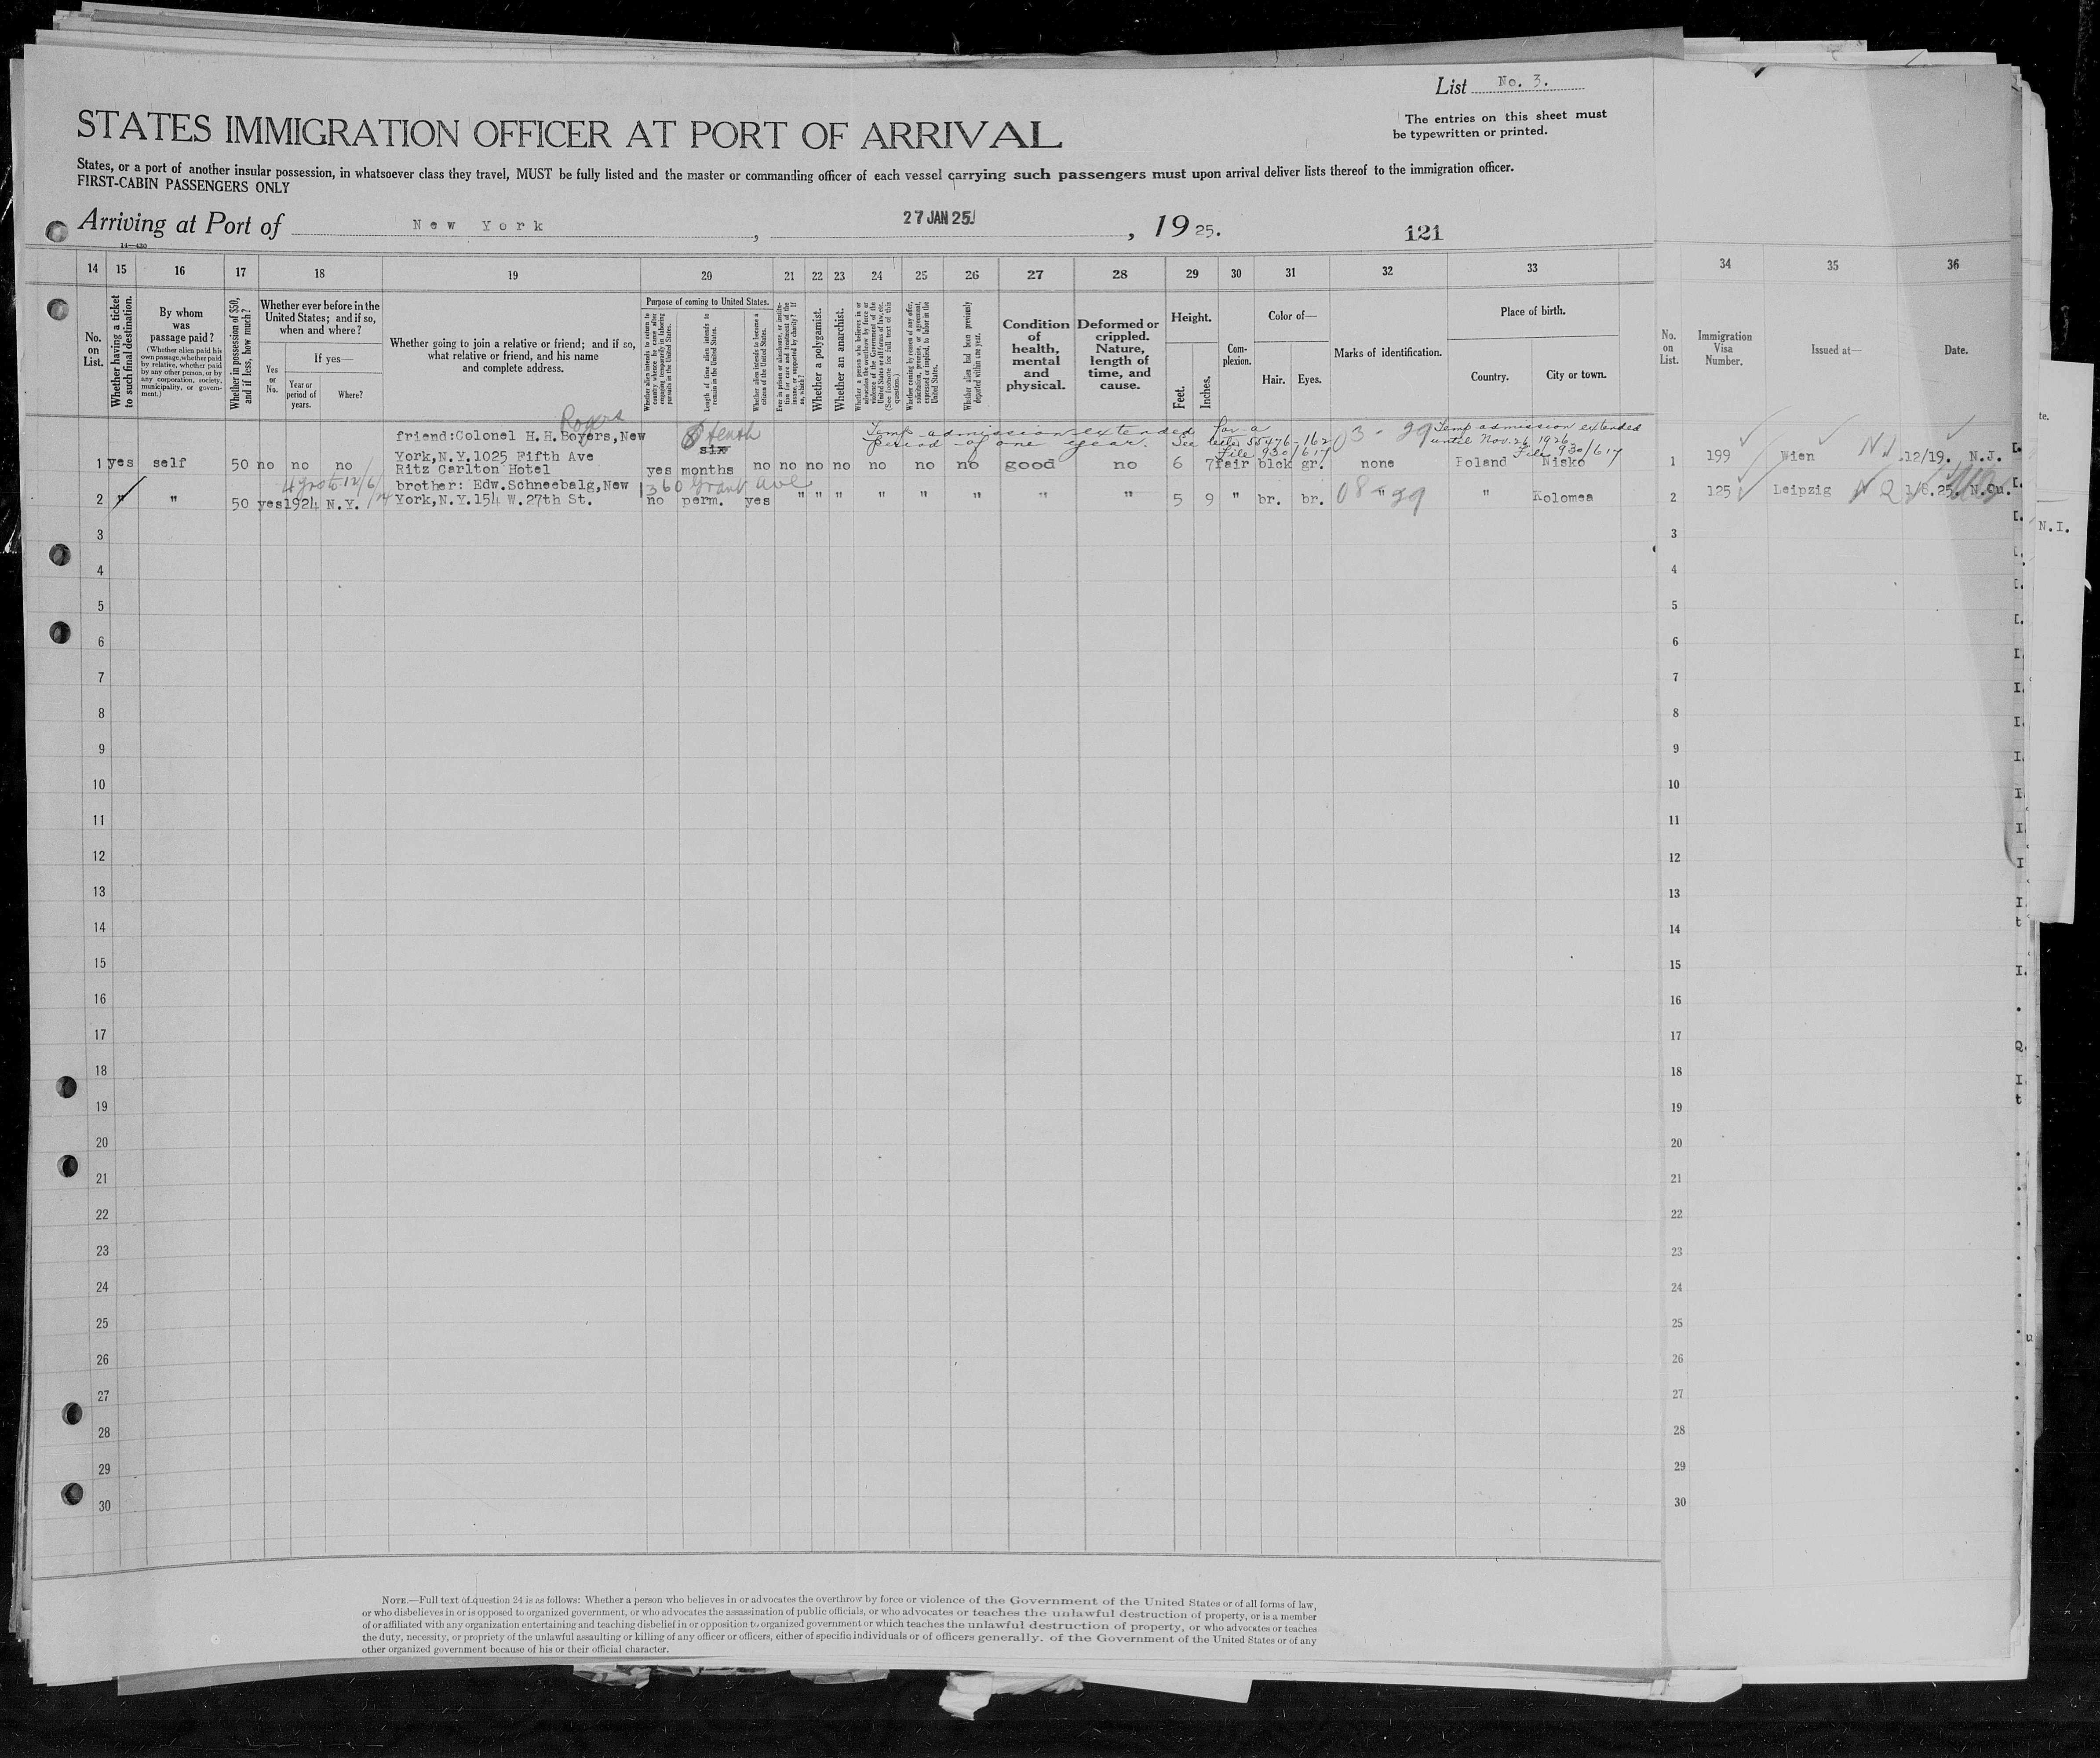 List No. 3.
The entries on this sheet must
be typewritten or printed.
STATES IMMIGRATION OFFICER AT PORT OF ARRIVAL
States, or a port of another insular possession, in whatsoever class they travel, MUST be fully listed and the master or commanding officer of each vessel carrying such passengers must upon arrival deliver lists thereof to the immigration officer.
FIRST-CABIN PASSENGERS ONLY
Arriving at Port of New York, 27 JAN 25, 1925.
121
14—430
14 15 16 17 18 19 20 21 22 23 24 25 26 27 28 29 30 31 32 33 34 35 36
No. on List.
Whether having a ticket to such final destination.
By whom was passage paid?
(Whether alien paid his own passage, whether paid by relative, whether paid by any other person, or by any corporation, society, municipality, or government.)
Whether in possession of $50, and if less, how much?
Whether ever before in the United States; and if so, when and where?
Yes or No.
If yes—
Year or period of years.
Where?
Whether going to join a relative or friend; and if so, what relative or friend, and his name and complete address.
Purpose of coming to United States.
Whether alien intends to return to country whence he came after engaging temporarily in laboring pursuits in the United States.
Length of time alien intends to remain in the United States.
Whether alien intends to become a citizen of the United States.
Ever in prison or almshouse, or institution for care and treatment of the insane, or supported by charity? If so, which?
Whether a polygamist.
Whether an anarchist.
Whether a person who believes in or advocates the overthrow by force or violence of the Government of the United States or all forms of law, etc. (See footnote for full text of this question.)
Whether coming by reason of any offer, solicitation, promise, or agreement, expressed or implied, to labor in the United States.
Whether alien had been previously deported within one year.
Condition of health, mental and physical.
Deformed or crippled. Nature, length of time, and cause.
Height.
Feet.
Inches.
Complexion.
Color of—
Hair.
Eyes.
Marks of identification.
Place of birth.
Country.
City or town.
No. on List.
Immigration Visa Number.
Issued at—
Date.
Rogers
friend:Colonel H.H.Boyers,New
York,N.Y.1025 Fifth Ave
Ritz Carlton Hotel
tenth
six
Temp admission extended for a
period of one year. See letter 55476-162
File 930/617
03-29
Temp admission extended
until Nov. 26 1926
File 930/617
1 yes self 50 no no no yes months no no no no no no no good no 6 7 fair blck gr. none Poland Nisko 1 199 Wien 12/19. N.J.
4 yrs to 12/6/24
brother: Edw.Schneebalg,New
1360 Grant Ave
2 " " 50 yes 1924 N.Y. York,N.Y.154 W.27th St. no perm. yes " " " " " " " " 5 9 " br. br. " " Kolomea 2 125 Leipzig N Q 1/6.25. N.Qu.
08-29
3 3
4 4
5 5
6 6
7 7
8 8
9 9
10 10
11 11
12 12
13 13
14 14
15 15
16 16
17 17
18 18
19 19
20 20
21 21
22 22
23 23
24 24
25 25
26 26
27 27
28 28
29 29
30 30
N.I.
NOTE.—Full text of question 24 is as follows: Whether a person who believes in or advocates the overthrow by force or violence of the Government of the United States or of all forms of law,
or who disbelieves in or is opposed to organized government, or who advocates the assassination of public officials, or who advocates or teaches the unlawful destruction of property, or is a member
of or affiliated with any organization entertaining and teaching disbelief in or opposition to organized government or which teaches the unlawful destruction of property, or who advocates or teaches
the duty, necessity, or propriety of the unlawful assaulting or killing of any officer or officers, either of specific individuals or of officers generally, of the Government of the United States or of any
other organized government because of his or their official character.